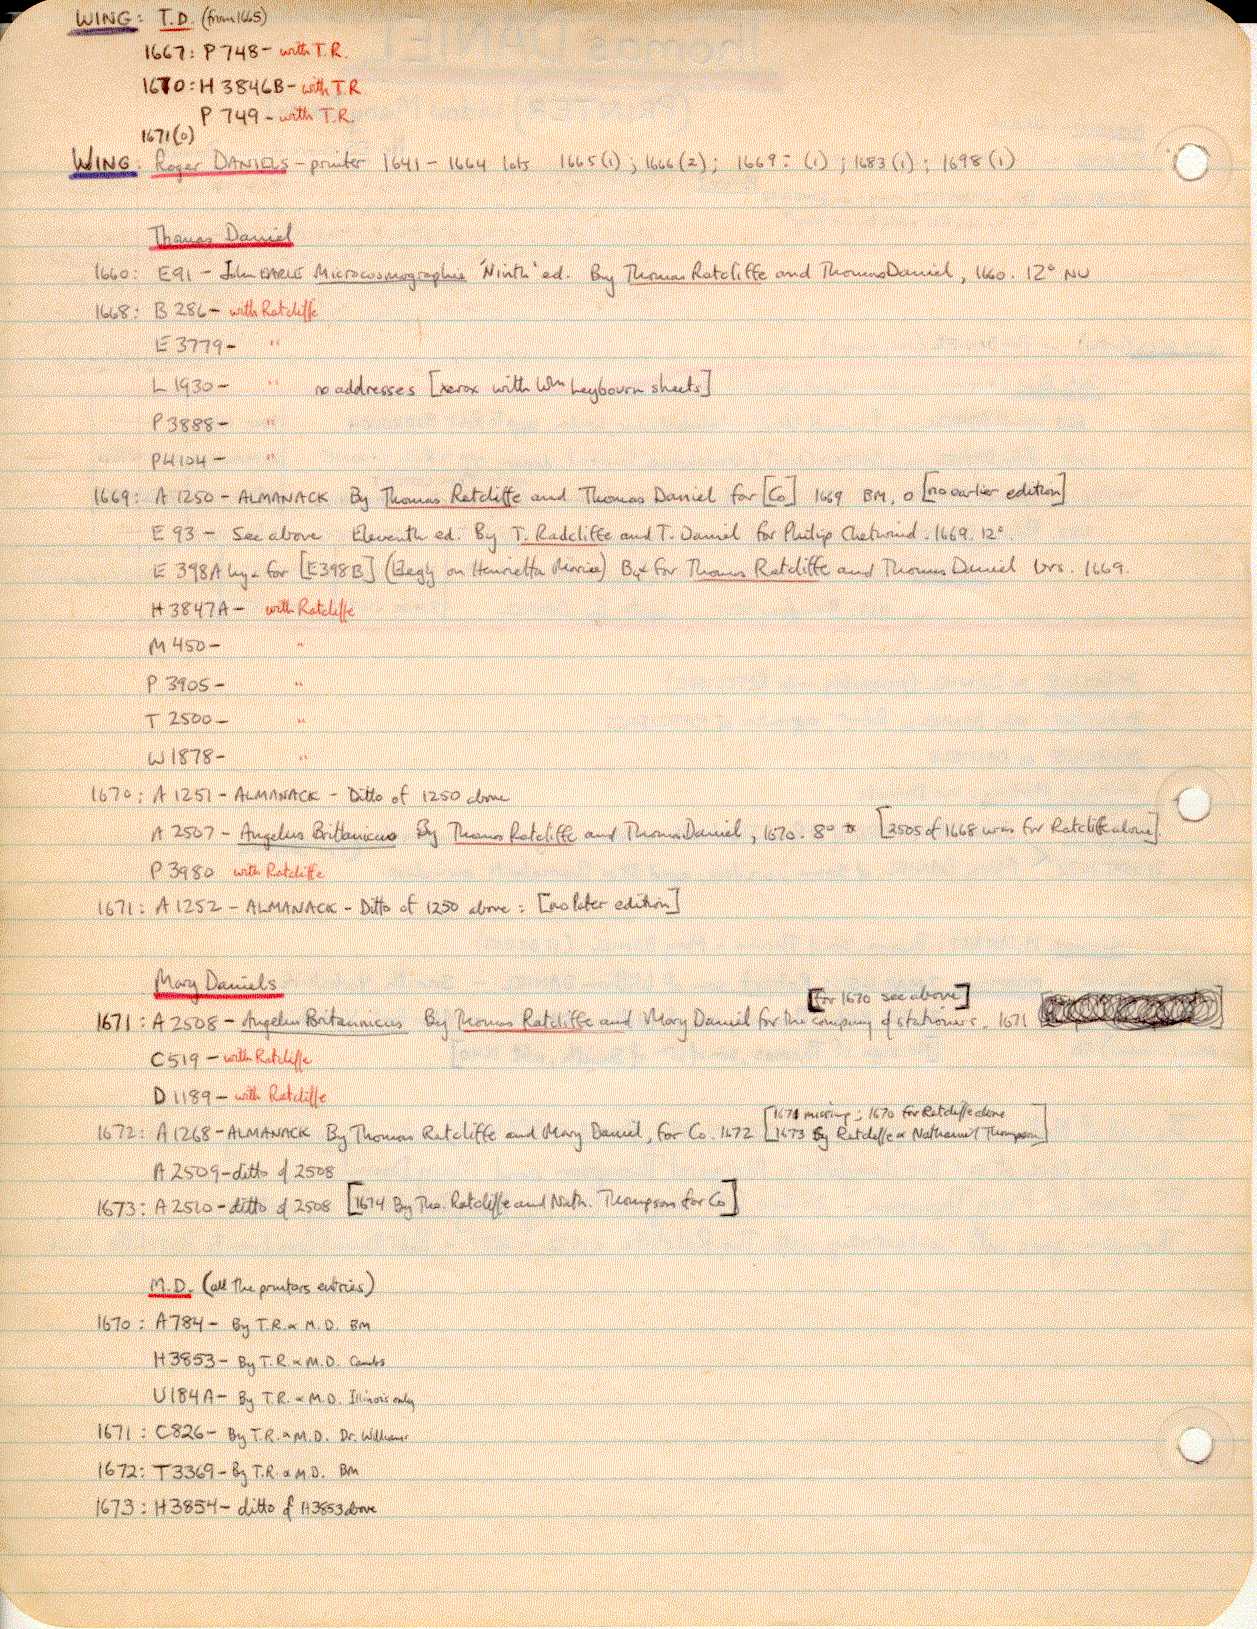 WING: T.D. (from 1665)
1667: P 748 - with T.R.
1670: H 3846B - with T.R
P 749 - with T.R.
1671(0)
WING. Roger DANIELS - printer 1641 - 1664 lots 1665(1); 1666(2); 1669: (1); 1683(1); 1698(1)
Thomas Daniel
1660: E91 - John EARLE Microcosmographie 'Ninth' ed. By Thomas Ratcliffe and Thomas Daniel, 1660. 12° NU
1668: B 286 - with Ratcliffe
E 3779 - "
L 1930 - " no addresses [xerox with Wm Leybourn sheets]
P 3888 - "
P4104 - "
1669: A 1250 - ALMANACK By Thomas Ratcliffe and Thomas Daniel for [Co] 1669 BM, O [no earlier edition]
E 93 - See above Eleventh ed. By T. Radcliffe and T. Daniel for Philip Chetwind. 1669. 12°.
E 398A for [E398B] (Elegy on Henrietta Maria) By & for Thomas Ratcliffe and Thomas Daniel brs. 1669.
H 3847A - with Ratcliffe
M 450 - "
P 3905 - "
T 2500 - "
W 1878 - "
1670: A 1251 - ALMANACK - Ditto of 1250 above
A 2507 - Angelus Brittanicus By Thomas Ratcliffe and Thomas Daniel, 1670. 8° * [2505 of 1668 was for Ratcliffe alone].
P 3980 with Ratcliffe
1671: A 1252 - ALMANACK - Ditto of 1250 above: [no later edition]
Mary Daniels
[for 1670 see above]
1671: A 2508 - Angelus Britannicus By Thomas Ratcliffe and Mary Daniel for the company of stationers. 1671
C519 - with Ratcliffe
D 1189 - with Ratcliffe
[1671 missing; 1670 for Ratcliffe alone
1672: A 1268 - ALMANACK By Thomas Ratcliffe and Mary Daniel, for Co. 1672 1673 By Ratcliffe & Nathaniel Thompson]
A 2509 - ditto of 2508
1673: A 2510 - ditto of 2508 [1674 By Tho. Ratcliffe and Nath. Thompson for Co]
M.D. (all the printers entries)
1670: A784 - By T.R. & M.D. BM
H3853 - By T.R. & M.D. Cambs
U184A - By T.R. & M.D. Illinois only
1671: C826 - By T.R. & M.D. Dr. Williams
1672: T3369 - By T.R. & M.D. BM
1673: H3854 - ditto of H3853 above